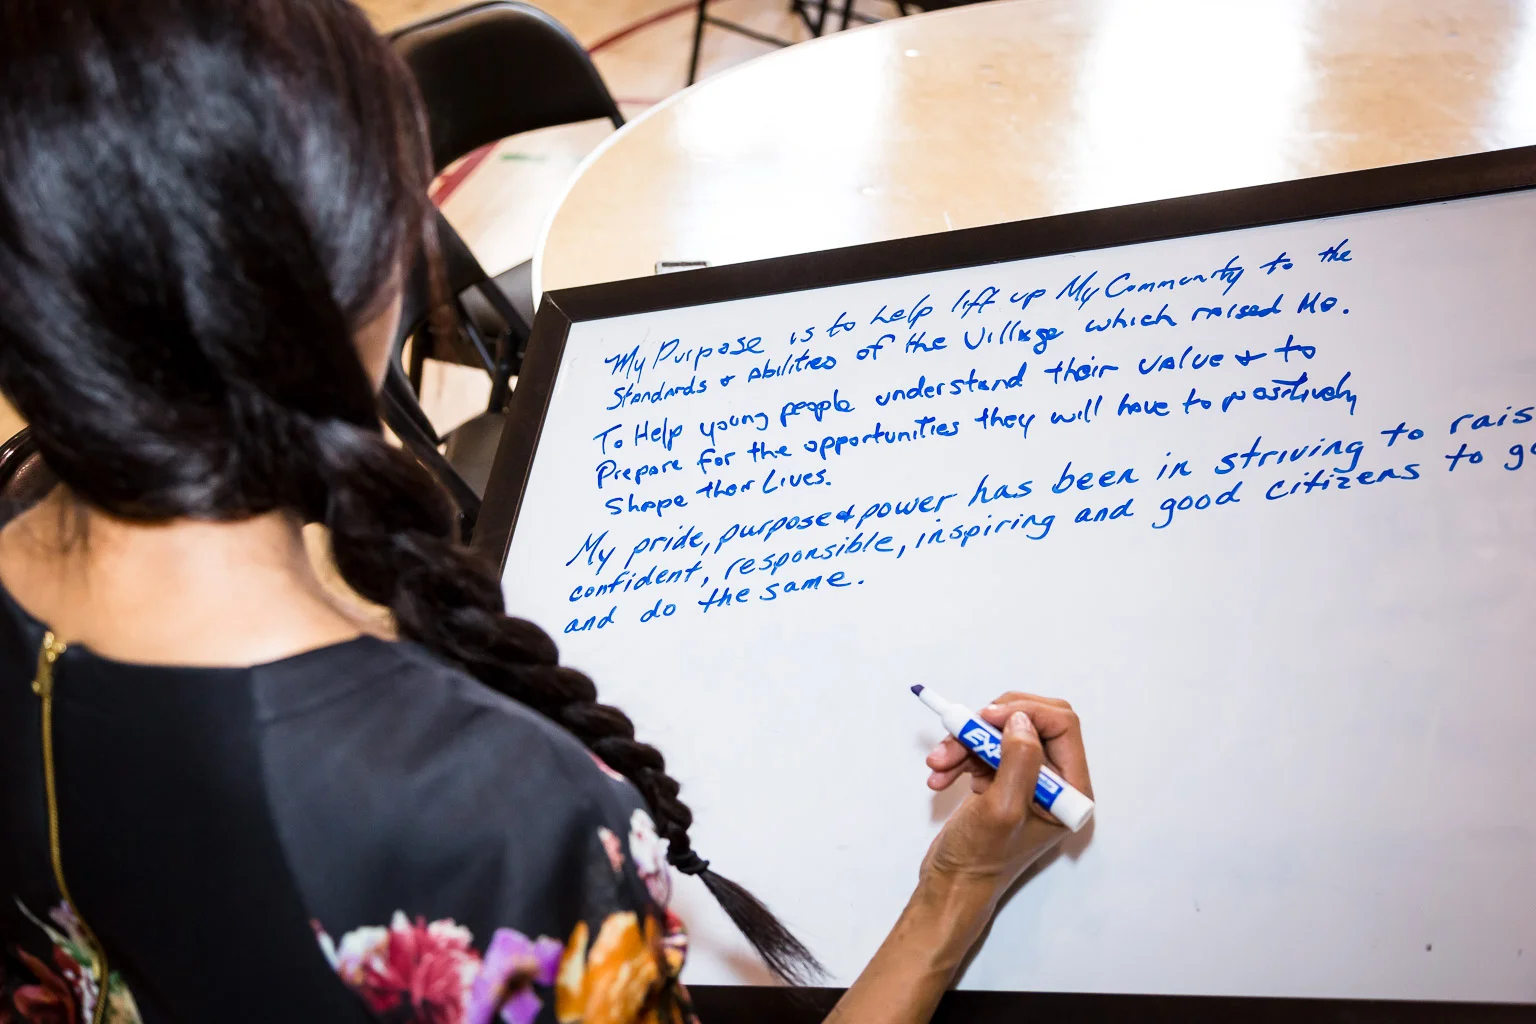 My Purpose is to help lift up My Community to the
Standards & Abilities of the Village which raised Me.
To Help young people understand their value & to
Prepare for the opportunities they will have to positively
Shape their Lives.
My pride, purpose & power has been in striving to rais
confident, responsible, inspiring and good citizens to g
and do the same.